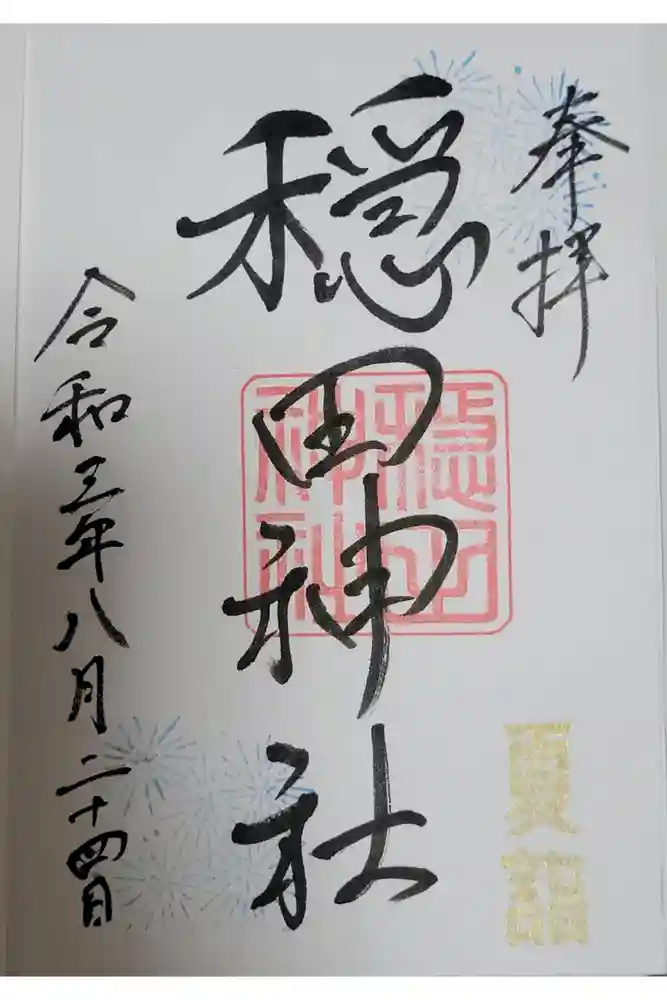 奉拝
穏田神社
穏田
神社
令和三年八月二十四日
夏詣